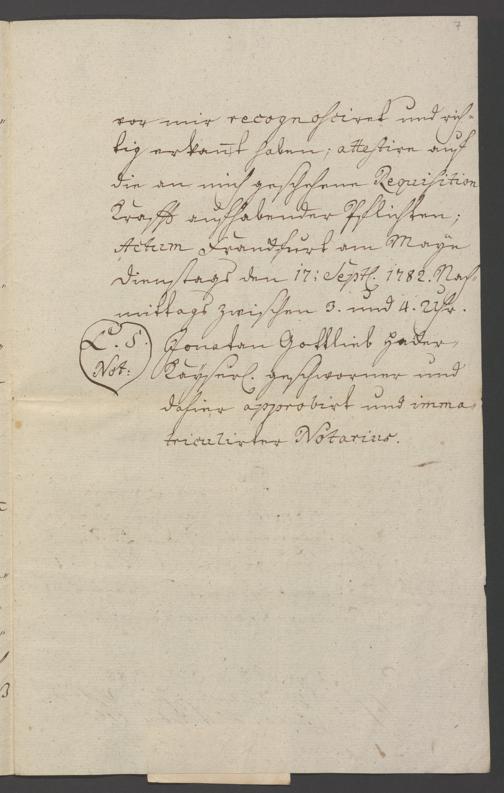 7
vor mir recognosciret und rich-
tig erkannt haben; attestire auf
die an mich geschehene Requisition
Krafft aufhabender Pflichten;
Actum Franckfurt am Mayn
Dienstags den 17: Septl. 1782. Nach-
mittags zwischen 3. und 4. Uhr.
L. S. Jonatan Gottlieb Hader,
Not: Kayserl. geschworner und
dahier approbirt und imma-
triculirter Notarius.